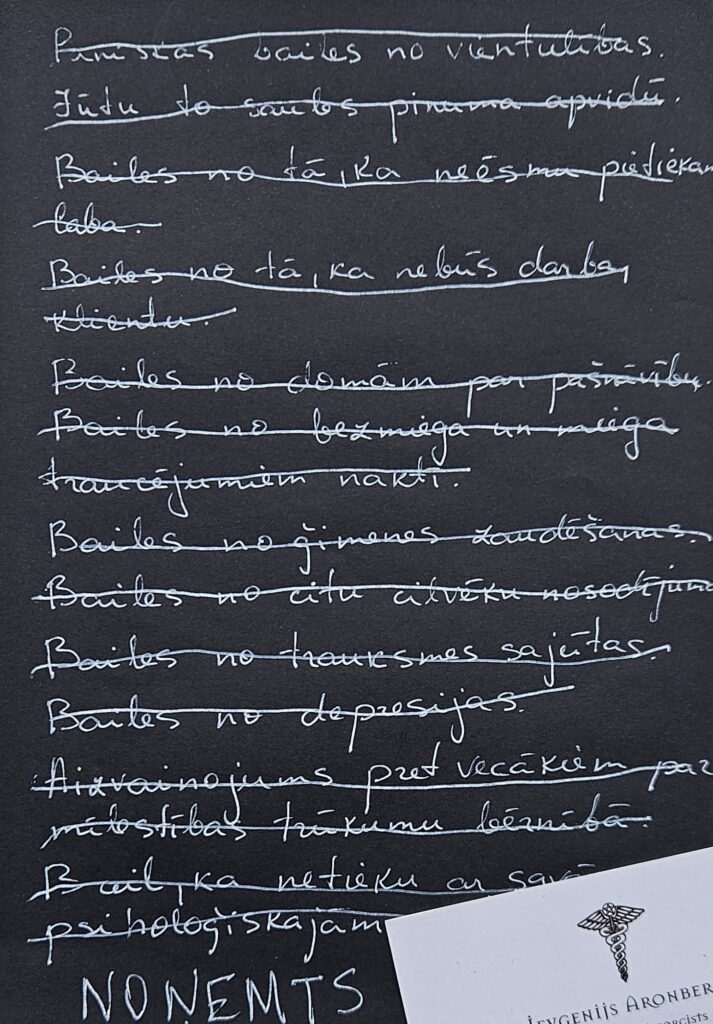 bailes no vientulības.
Jūtu to saules pinuma apvidū.
Bailes no tā, ka neesmu pietiekam
laba.
Bailes no tā, ka nebūs darba,
klientu.
Bailes no domām par pašnāvību.
Bailes no bezmiega un miega
traucējumiem naktī.
Bailes no ģimenes zaudēšanas.
Bailes no citu cilvēku nosodījuma
Bailes no trauksmes sajūtas.
Bailes no depresijas.
Aizvainojums pret vecākiem par
mīlestības trūkumu bērnībā.
Bail, ka netieku ar savā
psiholoģiskajām
NOŅEMTS
JEVGENIJS ARONBER